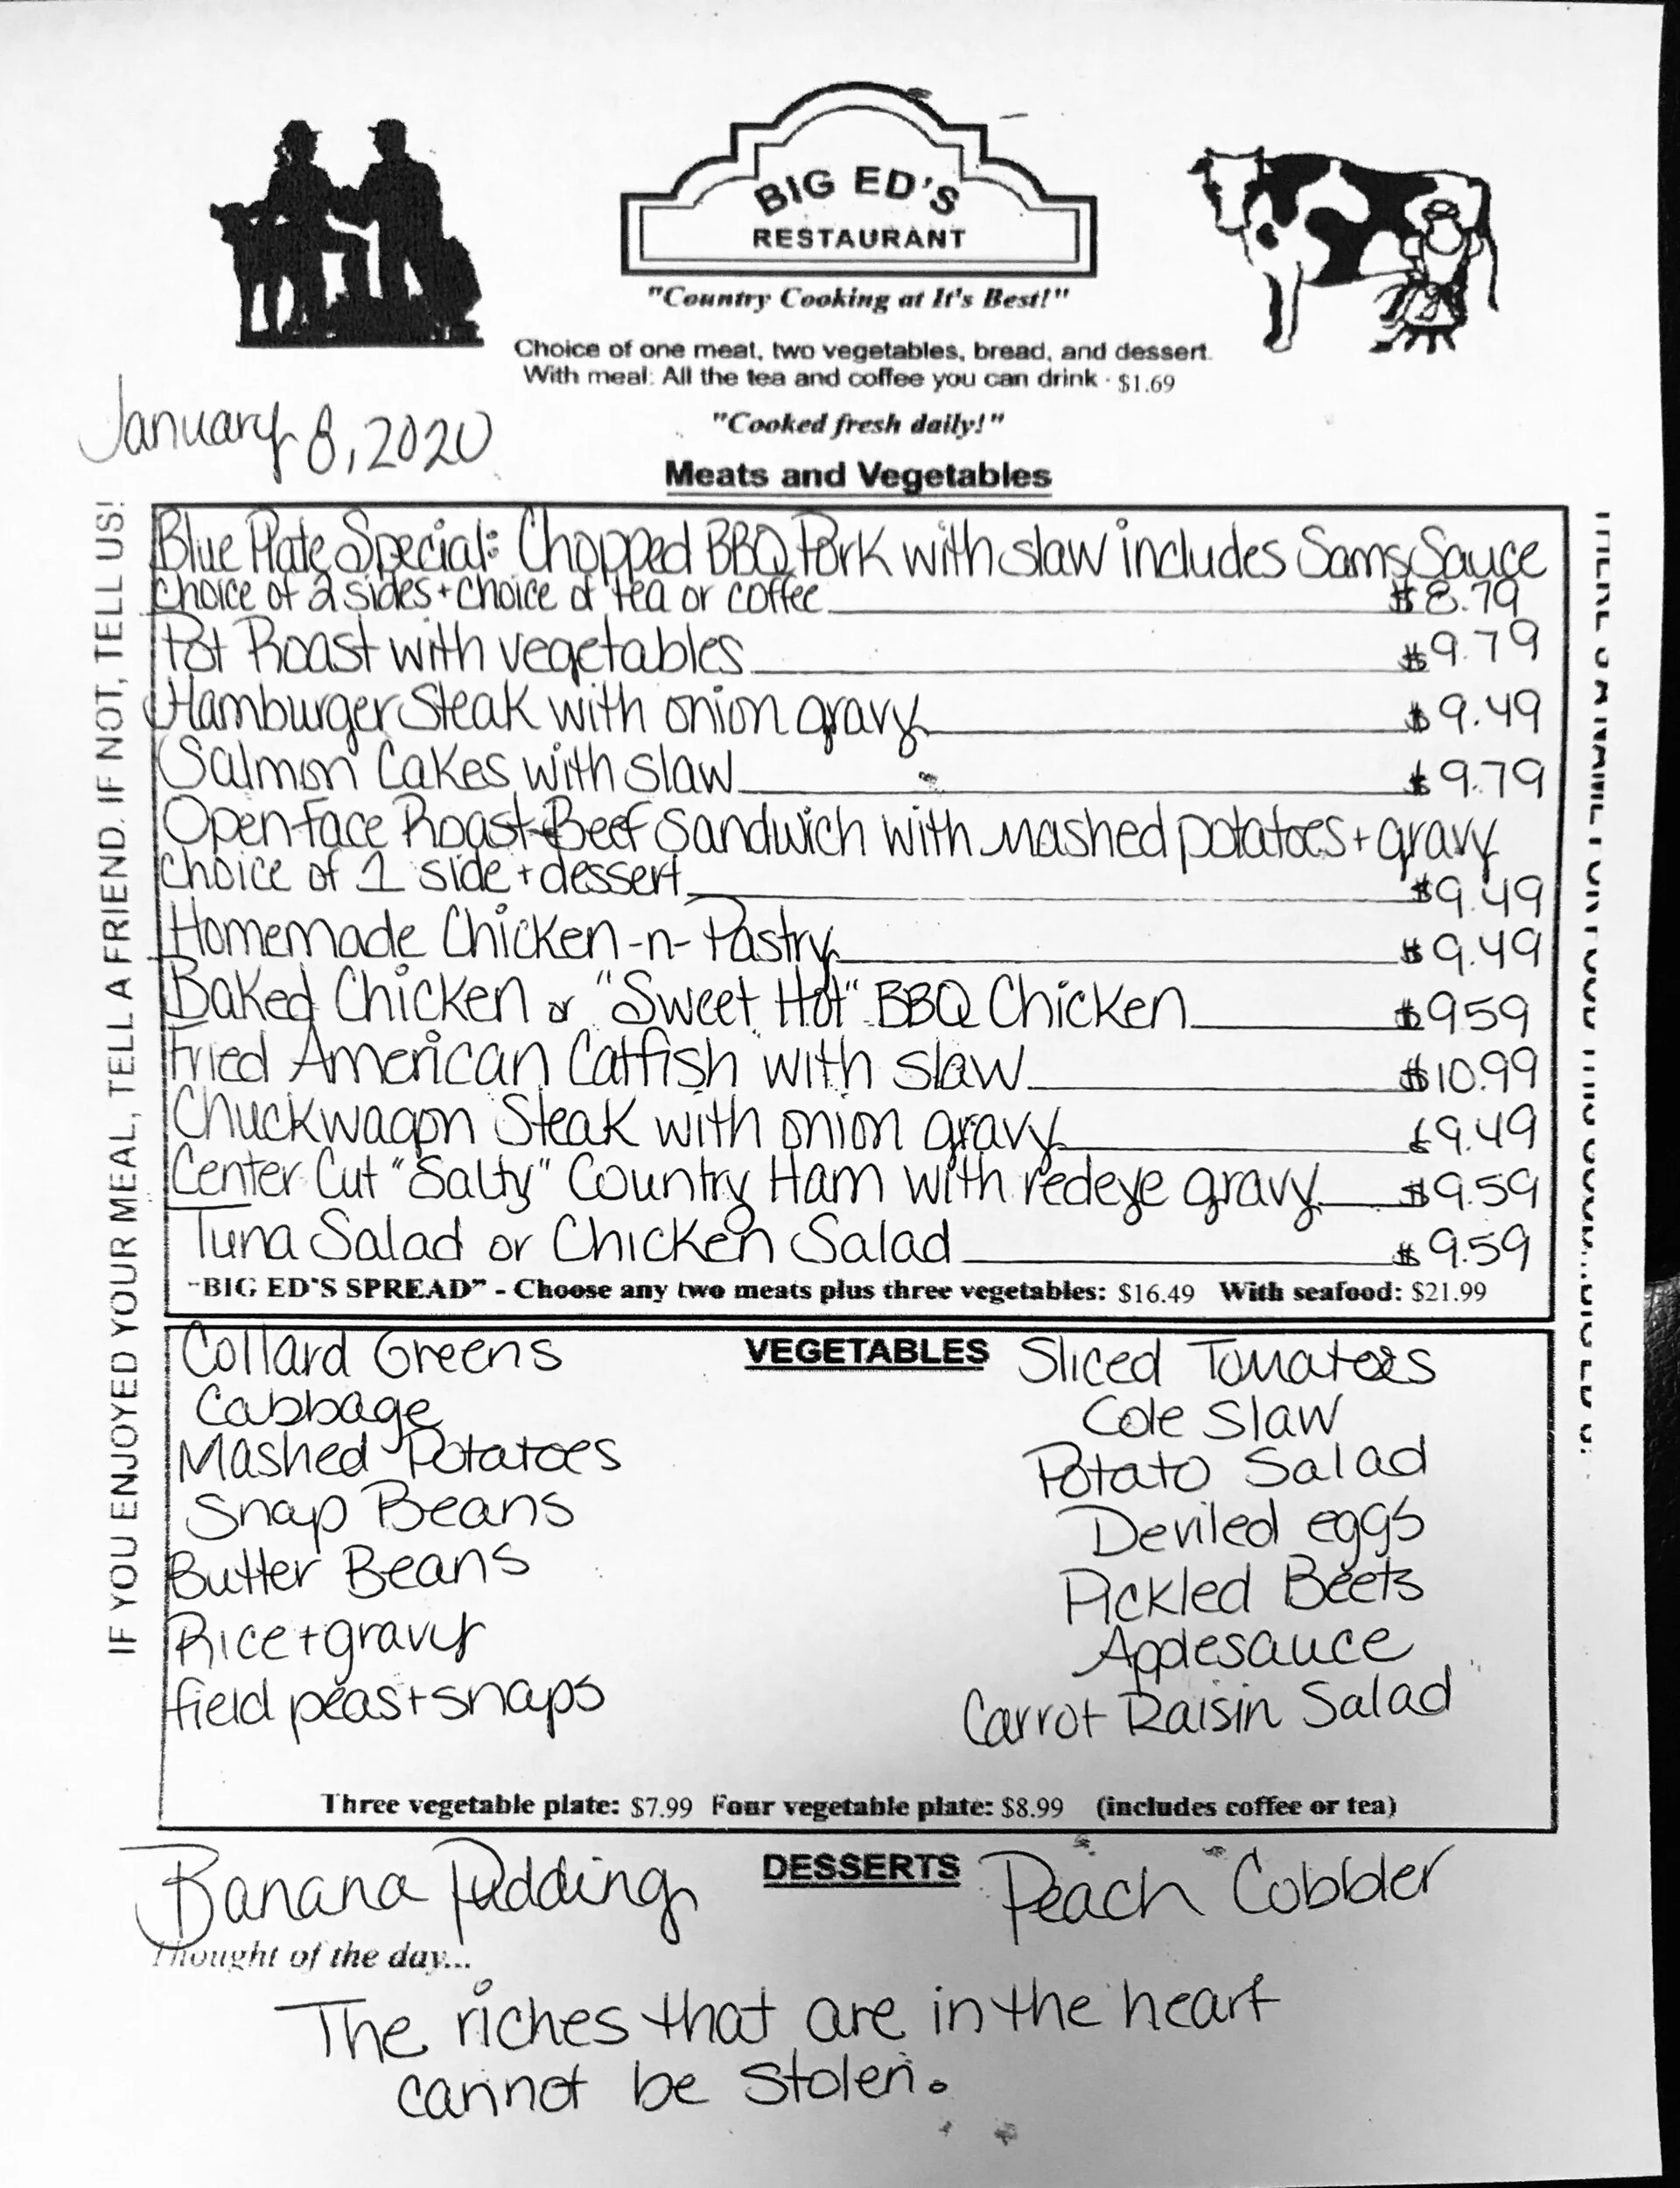 BIG ED'S
RESTAURANT
"Country Cooking at It's Best!"
Choice of one meat, two vegetables, bread, and dessert.
With meal: All the tea and coffee you can drink · $1.69
"Cooked fresh daily!"
January 8, 2020
Meats and Vegetables
IF YOU ENJOYED YOUR MEAL, TELL A FRIEND. IF NOT, TELL US!
Blue Plate Special: Chopped BBQ Pork with slaw includes Sams Sauce
choice of 2 sides + choice of tea or coffee $8.79
Pot Roast with vegetables $9.79
Hamburger Steak with onion gravy $9.49
Salmon Cakes with slaw $9.79
Open face Roast Beef Sandwich with mashed potatoes + gravy
choice of 1 side + dessert $9.49
Homemade Chicken -n- Pastry $9.49
Baked Chicken or "Sweet Hot" BBQ Chicken $959
Fried American Catfish with slaw $10.99
Chuckwagon Steak with onion gravy $9.49
Center Cut "Salty" Country Ham with redeye gravy $9.59
Tuna Salad or Chicken Salad $9.59
"BIG ED'S SPREAD" - Choose any two meats plus three vegetables: $16.49 With seafood: $21.99
VEGETABLES
Collard Greens
Cabbage
Mashed Potatoes
Snap Beans
Butter Beans
Rice + gravy
field peas + snaps
Sliced Tomatoes
Cole Slaw
Potato Salad
Deviled eggs
Pickled Beets
Applesauce
Carrot Raisin Salad
Three vegetable plate: $7.99 Four vegetable plate: $8.99 (includes coffee or tea)
DESSERTS
Banana Pudding
Peach Cobbler
Thought of the day...
The riches that are in the heart
cannot be stolen.